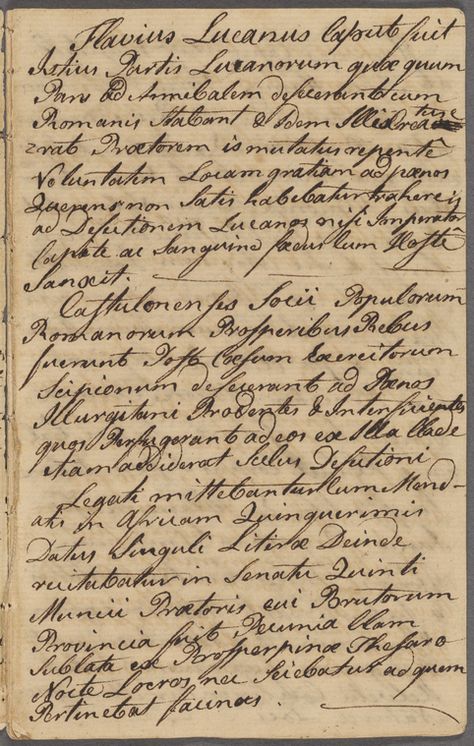 Flavius Lucanus Caput fuit
Istius Partis Lucanorum quæ quum
Pars ad Annibalem desciverant cum
Romanis Stabant & idem Illis Crea
zrat Prætorem is mutatus repentê
Voluntatem Locum gratiam ad pœnos
Quærens non Satis habebatur trahere is
ad Defectionem Lucanos nisi Imperator
Capite ac Sanguine fœdus cum Hostê
Sanxit.
Castulonenses Socii Populorum
Romanorum Prosperibus Rebus
fuerunt Post Cæsum Exercitorum
Scipionum desciverant ad Pœnos
Illurgitani Prodentes & Interficientes
quos Perfugerant ad eos ex Illa Clade
etiam addiderat Scelus Defectioni
Legati mittebantur cum Mand-
atis in Africam Quinqueremis
Datus Singuli Literæ Deinde
recitabatur in Senatu Quinti
Municii Prætoris cui Brutorum
Provincia fuit Pecunia Clam
Sublata ex Prosperpinæ Thesaro
Nocte Locros nec Sciebatur ad quem
Pertinebat facinas.